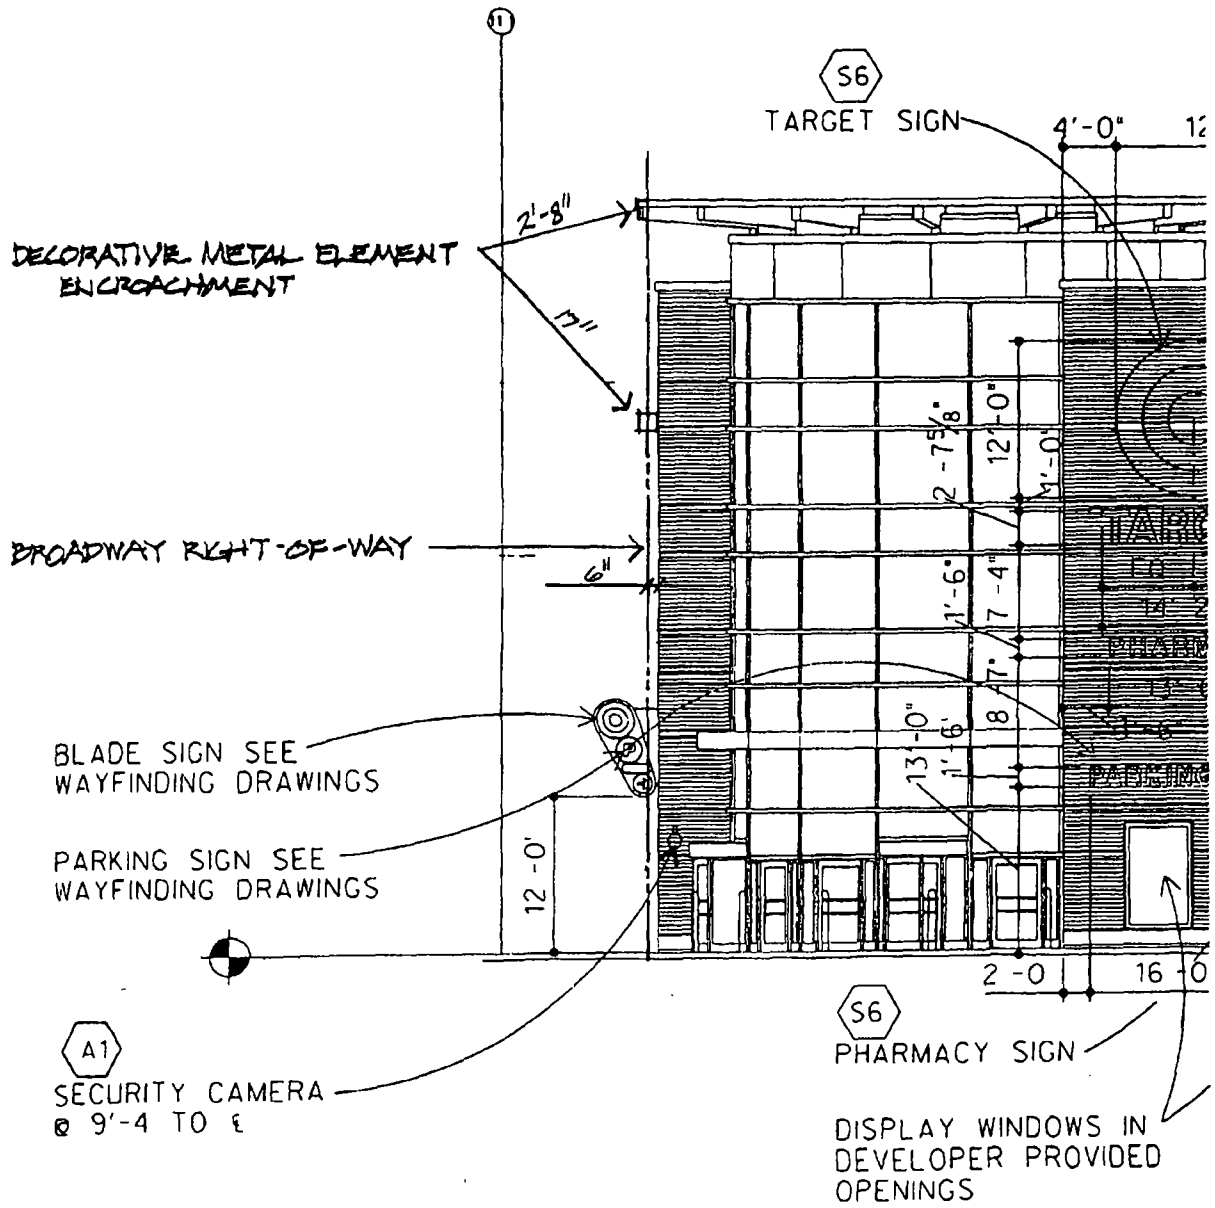 11
S6
TARGET SIGN
4'-0"
12
2'-8"
DECORATIVE METAL ELEMENT
ENCROACHMENT
2 -7 5/8"
12'-0"
1'-0"
BROADWAY RIGHT-OF-WAY
6"
1'-6"
7 -4"
14' 2
8 -7"
13'-0"
1'-6"
PARKING
BLADE SIGN SEE
WAYFINDING DRAWINGS
PARKING SIGN SEE
WAYFINDING DRAWINGS
12 -0'
2 -0
16 -0
A1
SECURITY CAMERA
@ 9'-4 TO ℄
S6
PHARMACY SIGN
DISPLAY WINDOWS IN
DEVELOPER PROVIDED
OPENINGS